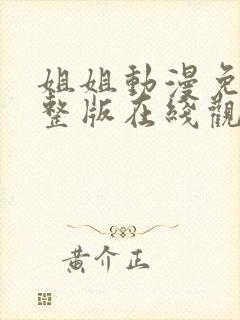 姐姐動漫免
整版在綫觀
黄介正